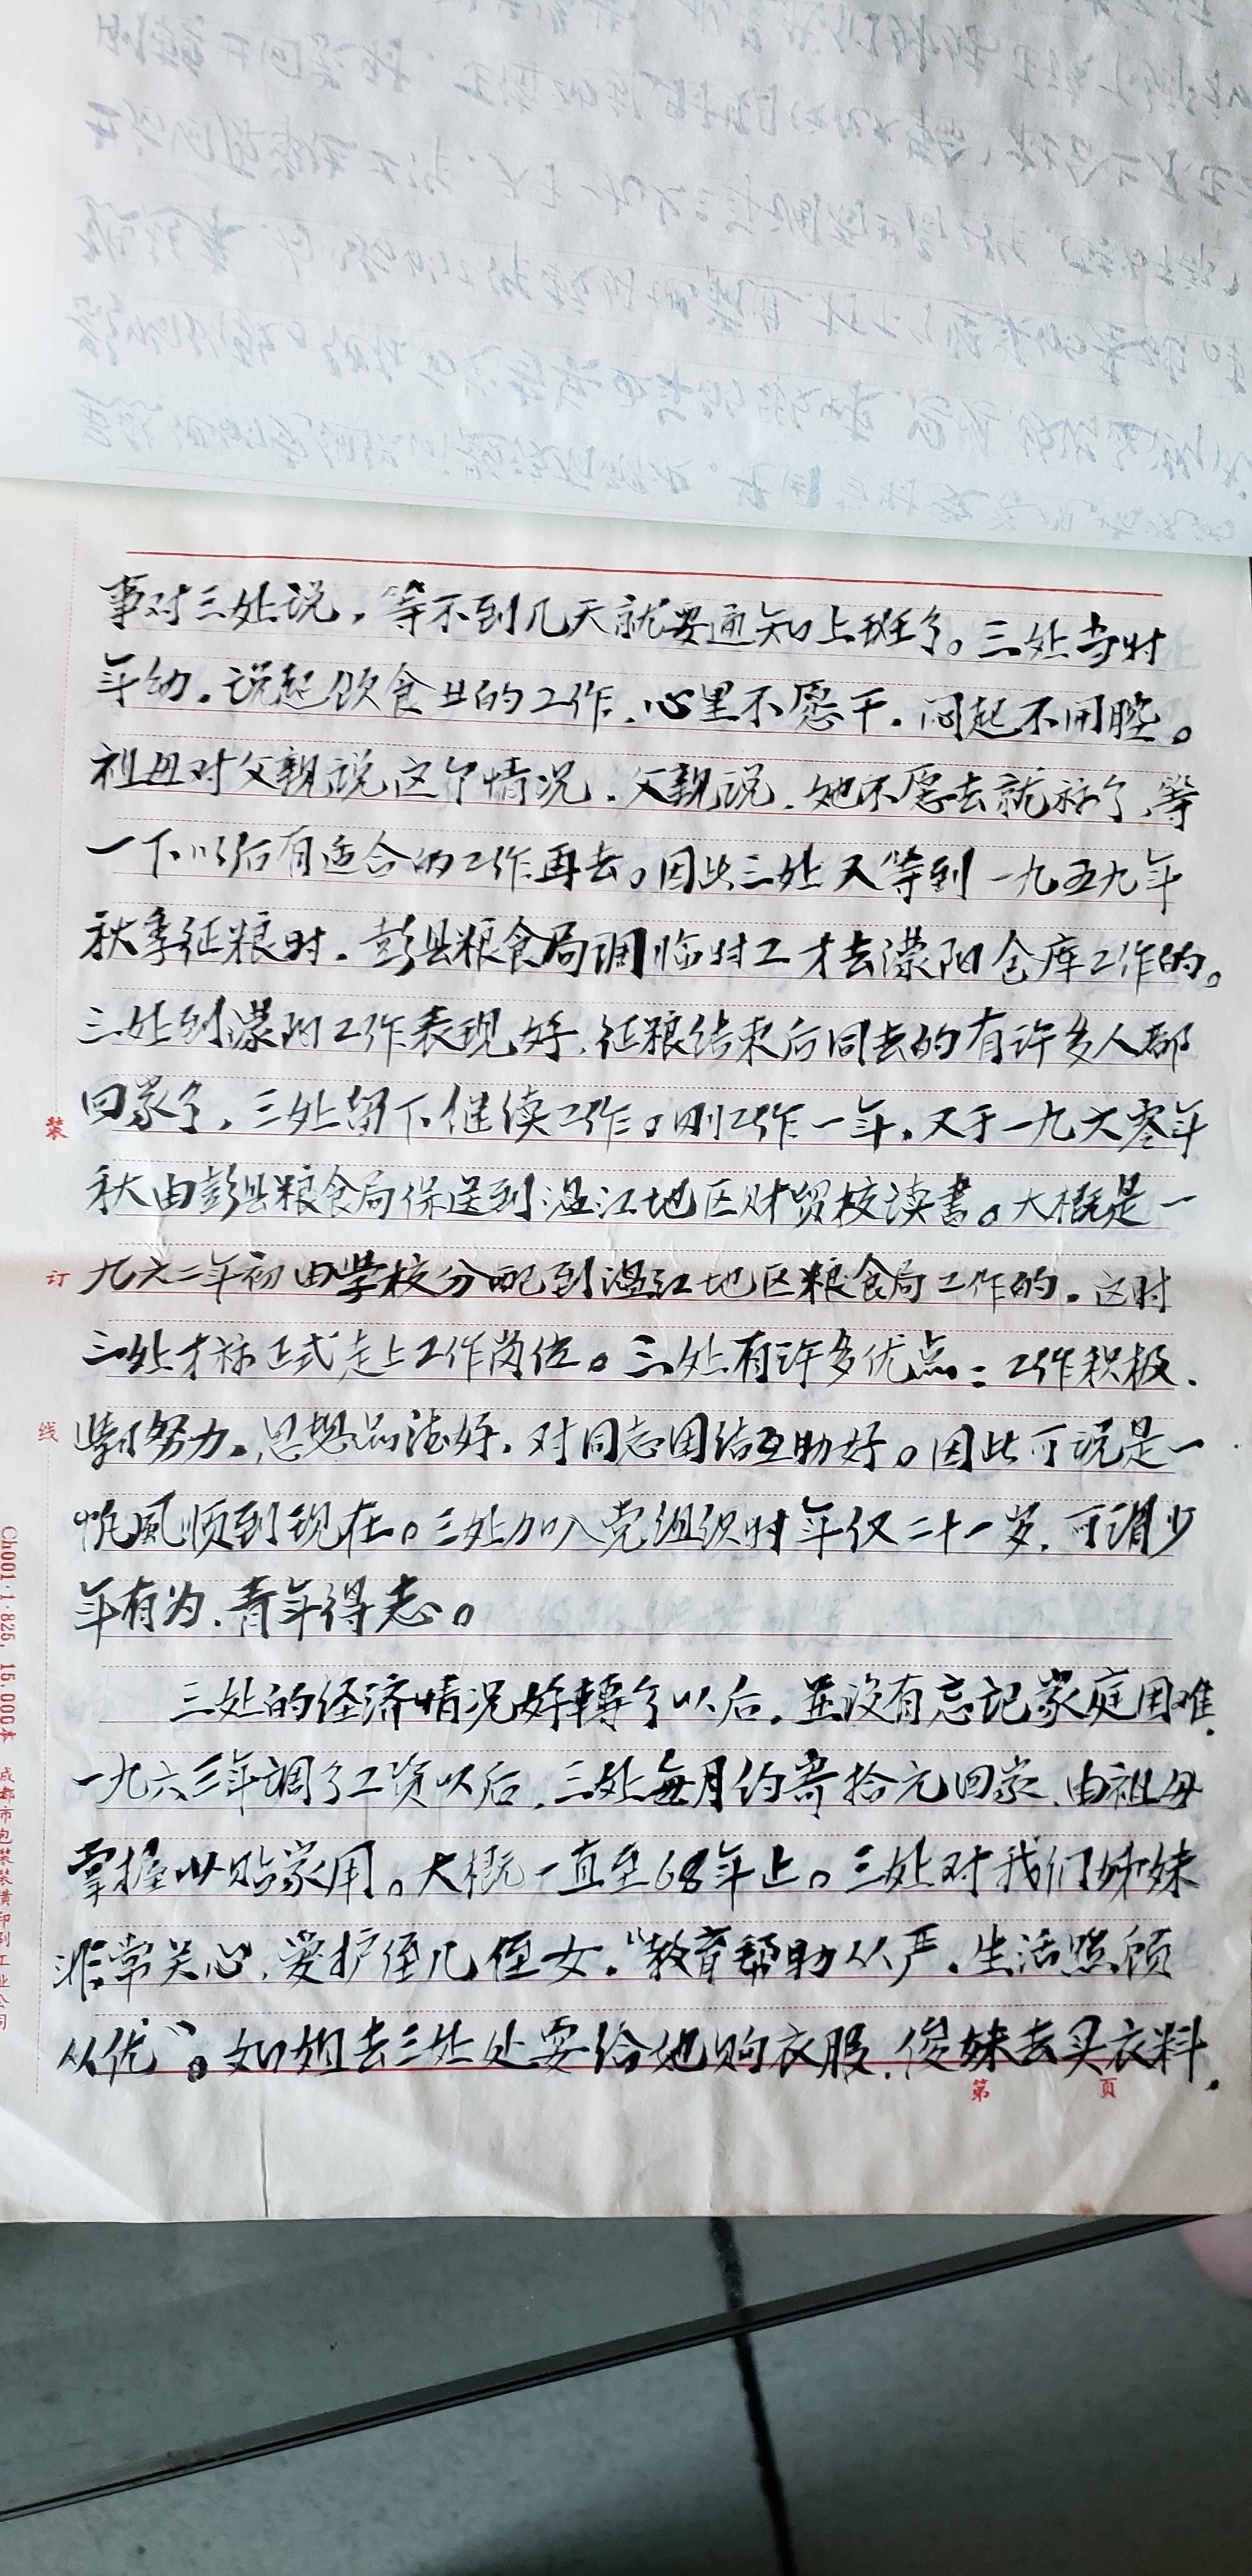 事对三处说，等不到几天就要通知上班了。三处当时
年幼。说起饮食业的工作，心里不愿干。闷起不开腔。
祖母对父亲说这个情况，父亲说，她不愿去就算了，等
一下以后有适合的工作再去。因此三处又等到一九五九年
秋季征粮时，彭县粮食局调临时工才去濛阳仓库工作的。
三处到濛阳工作表现好，征粮结束后同去的有许多人都
回家了，三处留下继续工作。刚工作一年，又于一九六零年
秋由彭县粮食局保送到温江地区财贸校读书。大概是一
九六二年初由学校分配到温江地区粮食局工作的。这时
三处才称正式走上工作岗位。三处有许多优点：工作积极，
学习努力。思想品德好，对同志团结互助好。因此可说是一
帆風顺到现在。三处加入党组织时年仅二十一岁，可谓少
年有为，青年得志。
三处的经济情况好轉了以后，並没有忘记家庭困难，
一九六三年调了工资以后，三处每月约寄拾元回家，由祖母
掌握以贴家用。大概一直至68年止。三处对我们姊妹
非常关心，爱护侄儿侄女。“教育帮助从严，生活照顾
从优”。如姐去三处处要给她购衣服，俊妹去买衣料，
装
订
线
第 页
Ch001·1·826, 15,000本 成都市包装装潢印刷工业公司